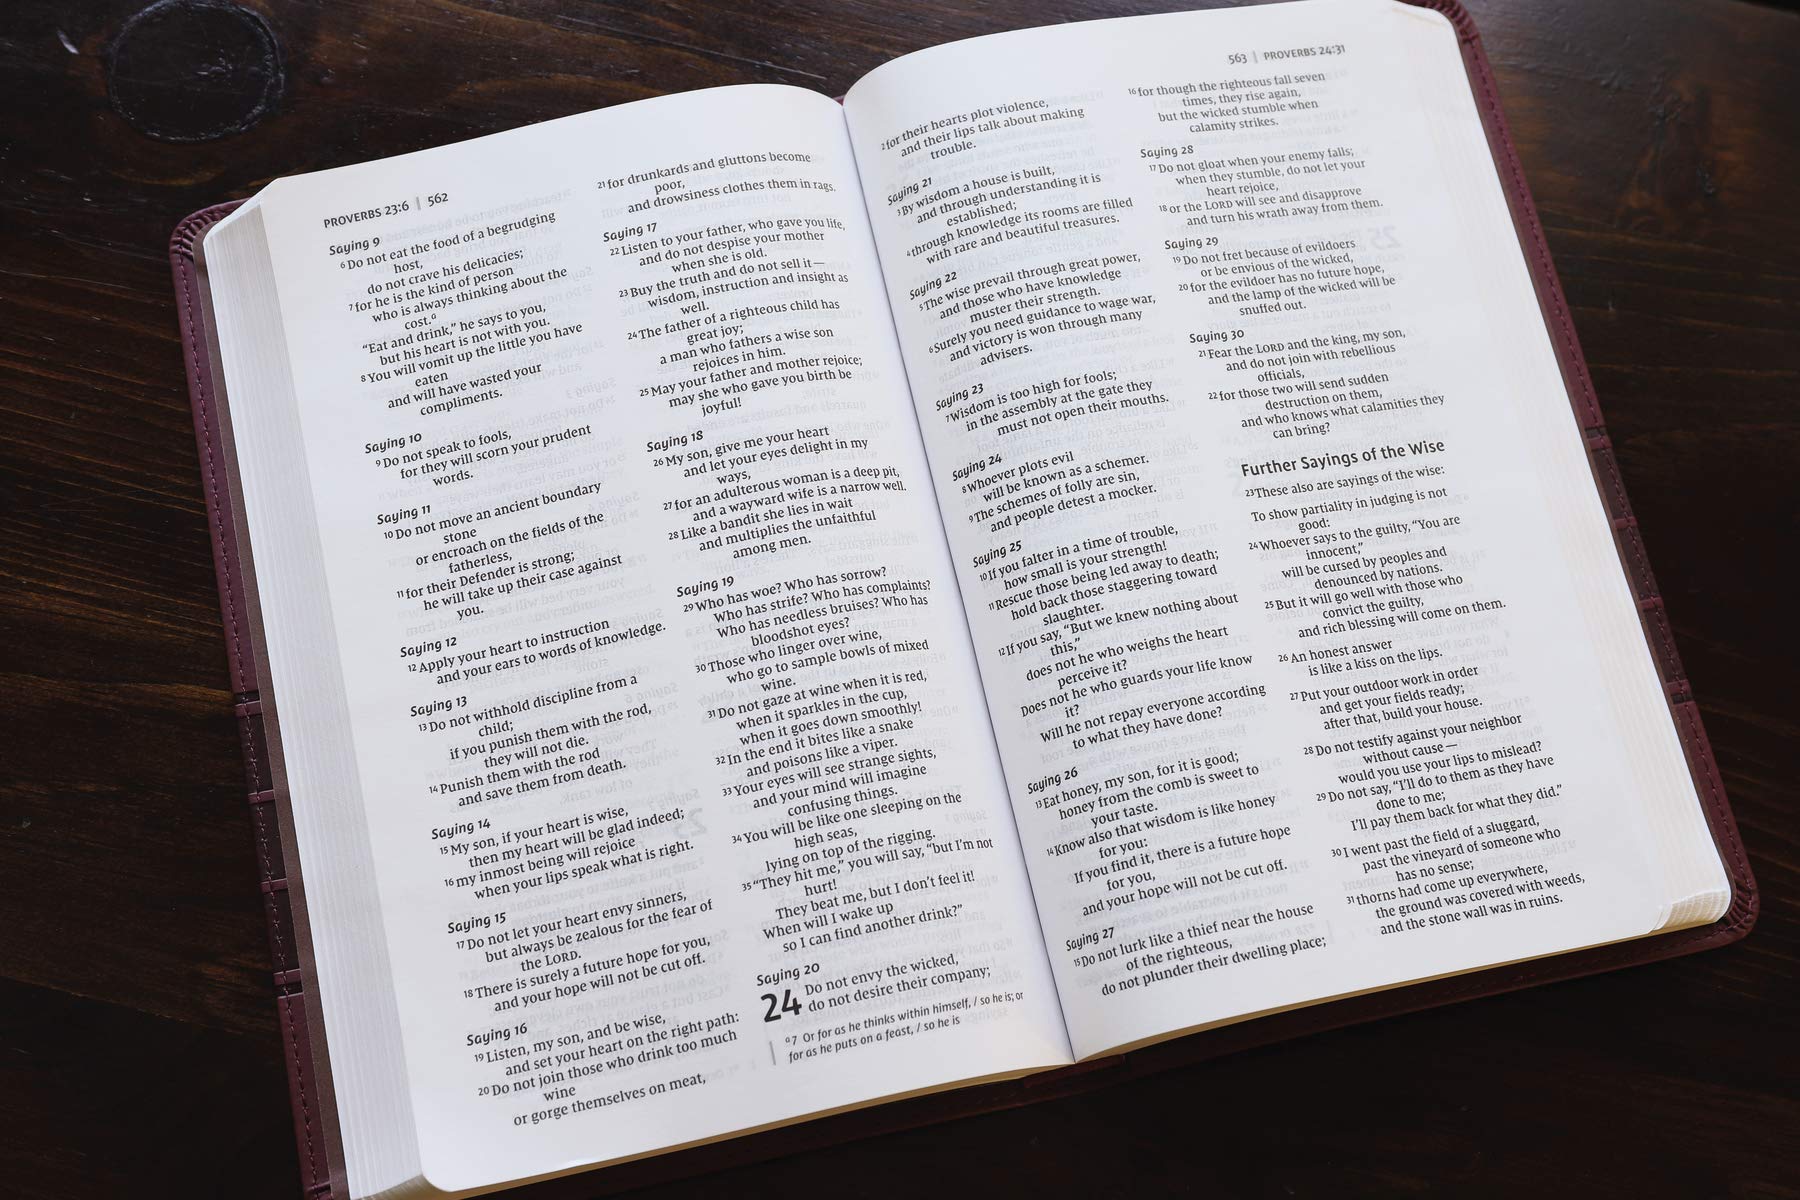 PROVERBS 23:6 | 562
Saying 9
6 Do not eat the food of a begrudging
host,
do not crave his delicacies;
7 for he is the kind of person
who is always thinking about the
cost.a
“Eat and drink,” he says to you,
but his heart is not with you.
8 You will vomit up the little you have
eaten
and will have wasted your
compliments.
Saying 10
9 Do not speak to fools,
for they will scorn your prudent
words.
Saying 11
10 Do not move an ancient boundary
stone
or encroach on the fields of the
fatherless,
11 for their Defender is strong;
he will take up their case against
you.
Saying 12
12 Apply your heart to instruction
and your ears to words of knowledge.
Saying 13
13 Do not withhold discipline from a
child;
if you punish them with the rod,
they will not die.
14 Punish them with the rod
and save them from death.
Saying 14
15 My son, if your heart is wise,
then my heart will be glad indeed;
16 my inmost being will rejoice
when your lips speak what is right.
Saying 15
17 Do not let your heart envy sinners,
but always be zealous for the fear of
the LORD.
18 There is surely a future hope for you,
and your hope will not be cut off.
Saying 16
19 Listen, my son, and be wise,
and set your heart on the right path:
20 Do not join those who drink too much
wine
or gorge themselves on meat,
21 for drunkards and gluttons become
poor,
and drowsiness clothes them in rags.
Saying 17
22 Listen to your father, who gave you life,
and do not despise your mother
when she is old.
23 Buy the truth and do not sell it—
wisdom, instruction and insight as
well.
24 The father of a righteous child has
great joy;
a man who fathers a wise son
rejoices in him.
25 May your father and mother rejoice;
may she who gave you birth be
joyful!
Saying 18
26 My son, give me your heart
and let your eyes delight in my
ways,
27 for an adulterous woman is a deep pit,
and a wayward wife is a narrow well.
28 Like a bandit she lies in wait
and multiplies the unfaithful
among men.
Saying 19
29 Who has woe? Who has sorrow?
Who has strife? Who has complaints?
Who has needless bruises? Who has
bloodshot eyes?
30 Those who linger over wine,
who go to sample bowls of mixed
wine.
31 Do not gaze at wine when it is red,
when it sparkles in the cup,
when it goes down smoothly!
32 In the end it bites like a snake
and poisons like a viper.
33 Your eyes will see strange sights,
and your mind will imagine
confusing things.
34 You will be like one sleeping on the
high seas,
lying on top of the rigging.
35 “They hit me,” you will say, “but I’m not
hurt!
They beat me, but I don’t feel it!
When will I wake up
so I can find another drink?”
Saying 20
24 Do not envy the wicked,
do not desire their company;
a 7 Or for as he thinks within himself, / so he is; or
for as he puts on a feast, / so he is
563 | PROVERBS 24:31
2 for their hearts plot violence,
and their lips talk about making
trouble.
Saying 21
3 By wisdom a house is built,
and through understanding it is
established;
4 through knowledge its rooms are filled
with rare and beautiful treasures.
Saying 22
5 The wise prevail through great power,
and those who have knowledge
muster their strength.
6 Surely you need guidance to wage war,
and victory is won through many
advisers.
Saying 23
7 Wisdom is too high for fools;
in the assembly at the gate they
must not open their mouths.
Saying 24
8 Whoever plots evil
will be known as a schemer.
9 The schemes of folly are sin,
and people detest a mocker.
Saying 25
10 If you falter in a time of trouble,
how small is your strength!
11 Rescue those being led away to death;
hold back those staggering toward
slaughter.
12 If you say, “But we knew nothing about
this,”
does not he who weighs the heart
perceive it?
Does not he who guards your life know
it?
Will he not repay everyone according
to what they have done?
Saying 26
13 Eat honey, my son, for it is good;
honey from the comb is sweet to
your taste.
14 Know also that wisdom is like honey
for you:
If you find it, there is a future hope
for you,
and your hope will not be cut off.
Saying 27
15 Do not lurk like a thief near the house
of the righteous,
do not plunder their dwelling place;
16 for though the righteous fall seven
times, they rise again,
but the wicked stumble when
calamity strikes.
Saying 28
17 Do not gloat when your enemy falls;
when they stumble, do not let your
heart rejoice,
18 or the LORD will see and disapprove
and turn his wrath away from them.
Saying 29
19 Do not fret because of evildoers
or be envious of the wicked,
20 for the evildoer has no future hope,
and the lamp of the wicked will be
snuffed out.
Saying 30
21 Fear the LORD and the king, my son,
and do not join with rebellious
officials,
22 for those two will send sudden
destruction on them,
and who knows what calamities they
can bring?
Further Sayings of the Wise
23 These also are sayings of the wise:
To show partiality in judging is not
good:
24 Whoever says to the guilty, “You are
innocent,”
will be cursed by peoples and
denounced by nations.
25 But it will go well with those who
convict the guilty,
and rich blessing will come on them.
26 An honest answer
is like a kiss on the lips.
27 Put your outdoor work in order
and get your fields ready;
after that, build your house.
28 Do not testify against your neighbor
without cause—
would you use your lips to mislead?
29 Do not say, “I’ll do to them as they have
done to me;
I’ll pay them back for what they did.”
30 I went past the field of a sluggard,
past the vineyard of someone who
has no sense;
31 thorns had come up everywhere,
the ground was covered with weeds,
and the stone wall was in ruins.